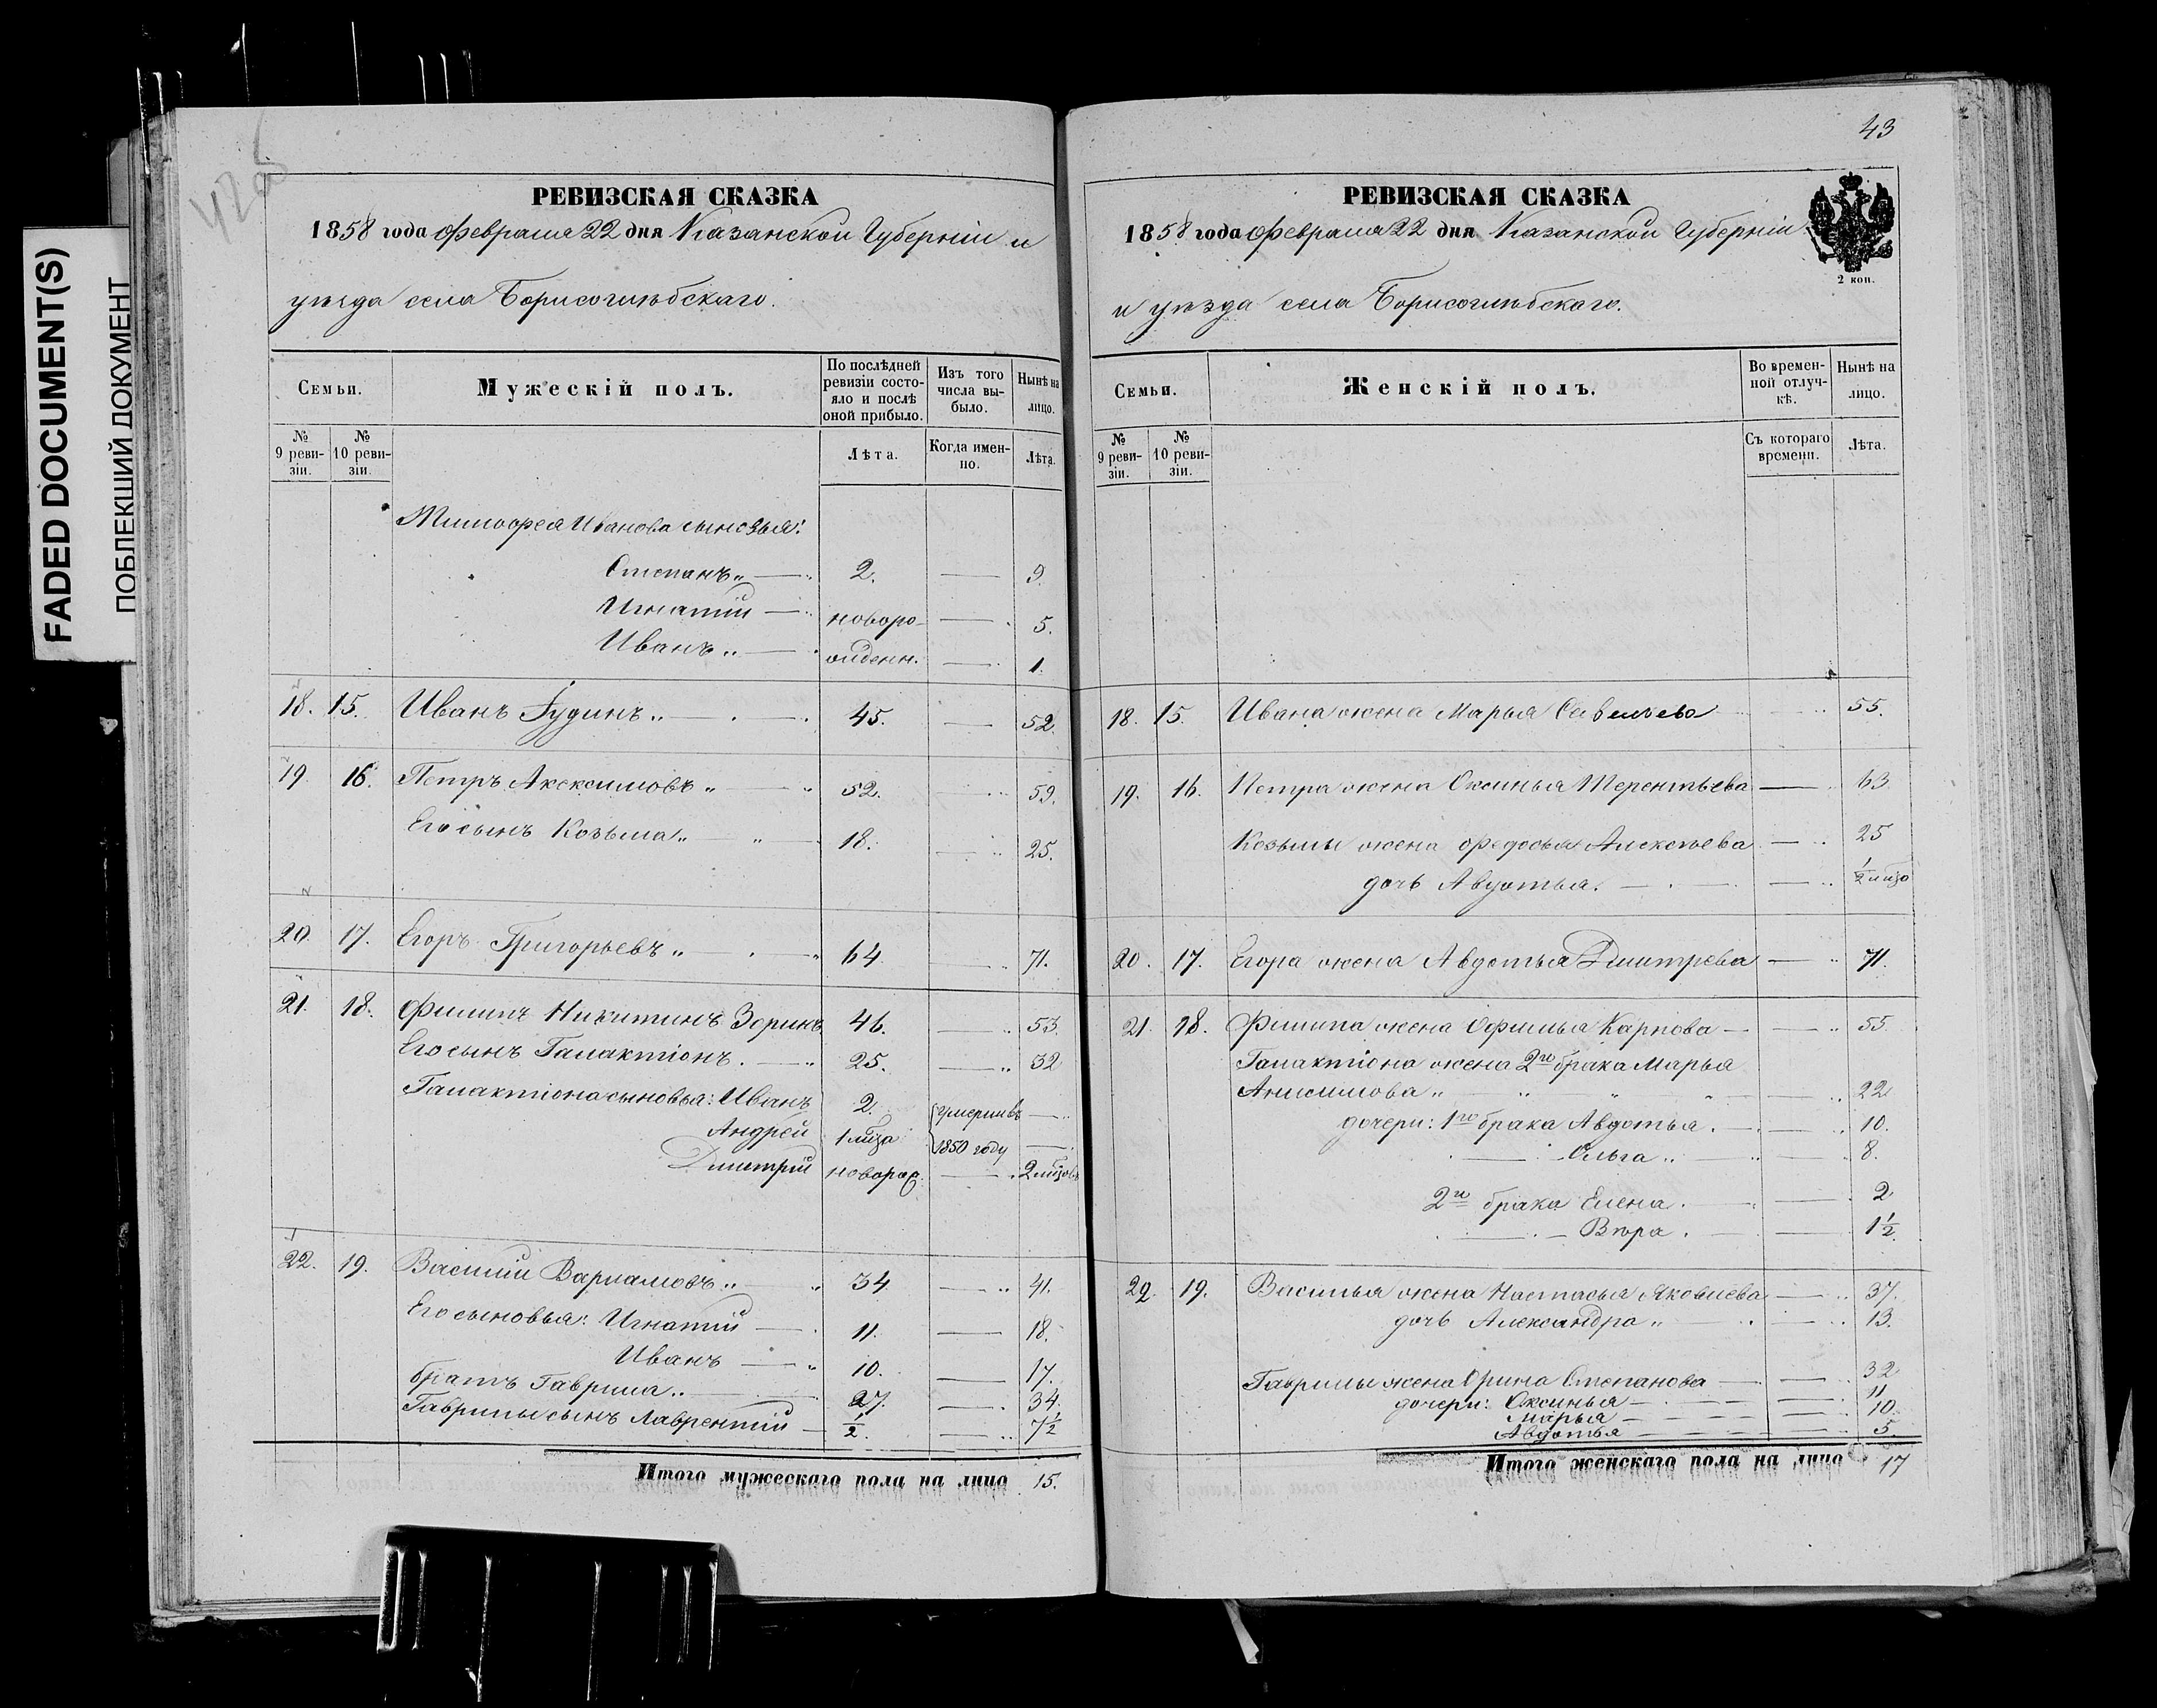 FADED DOCUMENT(S)
ПОБЛЕКШИЙ ДОКУМЕНТ
42об
РЕВИЗСКАЯ СКАЗКА
1858 года Февраля 22 дня Казанской Губерніи и
уѣзда села Борисоглѣбскаго.
Семьи.
Мужескій полъ.
По послѣдней ревизіи состояло и послѣ оной прибыло.
Изъ того числа выбыло.
Нынѣ на лицо.
№ 9 ревизіи.
№ 10 ревизіи.
Лѣта.
Когда именно.
Лѣта.
Тимофея Иванова сыновья:
Степанъ 2. 9.
Игнатій новоро- 5.
Иванъ жденн. 1.
18. 15. Иванъ Іудинъ 45. 52.
19. 16. Петръ Максимовъ 52. 59.
Его сынъ Козьма 18. 25.
20. 17. Егоръ Григорьевъ 64 71.
21. 18. Филипъ Никитинъ Зоринъ 46. 53.
Его сынъ Галактіонъ. 25. 32
Галактіона сыновья: Иванъ 2. умерли въ
Андрей 1 1850 году
Дмитрій новорож.
22. 19. Василій Варламовъ 34 41.
Его сыновья: Игнатій 11. 18.
Иванъ 10. 17.
братъ Гаврила 27. 34.
Гаврилы сынъ Лаврентій 1/2. 7 1/2
Итого мужескаго пола на лицо 15.
43
РЕВИЗСКАЯ СКАЗКА
1858 года Февраля 22 дня Казанской Губерніи
и уѣзда села Борисоглѣбскаго.
2 коп.
Семьи.
Женскій полъ.
Во временной отлучкѣ.
Нынѣ на лицо.
№ 9 ревизіи.
№ 10 ревизіи.
Съ котораго времени.
Лѣта.
18. 15. Ивана жена Марья Савельева 55.
19. 16. Петра жена Оксинья Терентьева 63
Козьмы жена Федосья Алексѣева 25
дочь Авдотья. 1/2
20. 17. Егора жена Авдотья Дмитрева 71.
21. 18. Филипа жена Офимья Карпова 55.
Галактіона жена 2го брака Марья
Анисимова 22
дочери: 1го брака Авдотья. 10.
Ольга 8.
2го брака Елена. 2
Вѣра. 1 1/2
22. 19. Василья жена Настасья Яковлева 37.
дочь Александра 13.
Гаврилы жена Орина Степанова 32
дочери: Оксинья 11
Марья 10.
Авдотья 5.
Итого женскаго пола на лицо 17